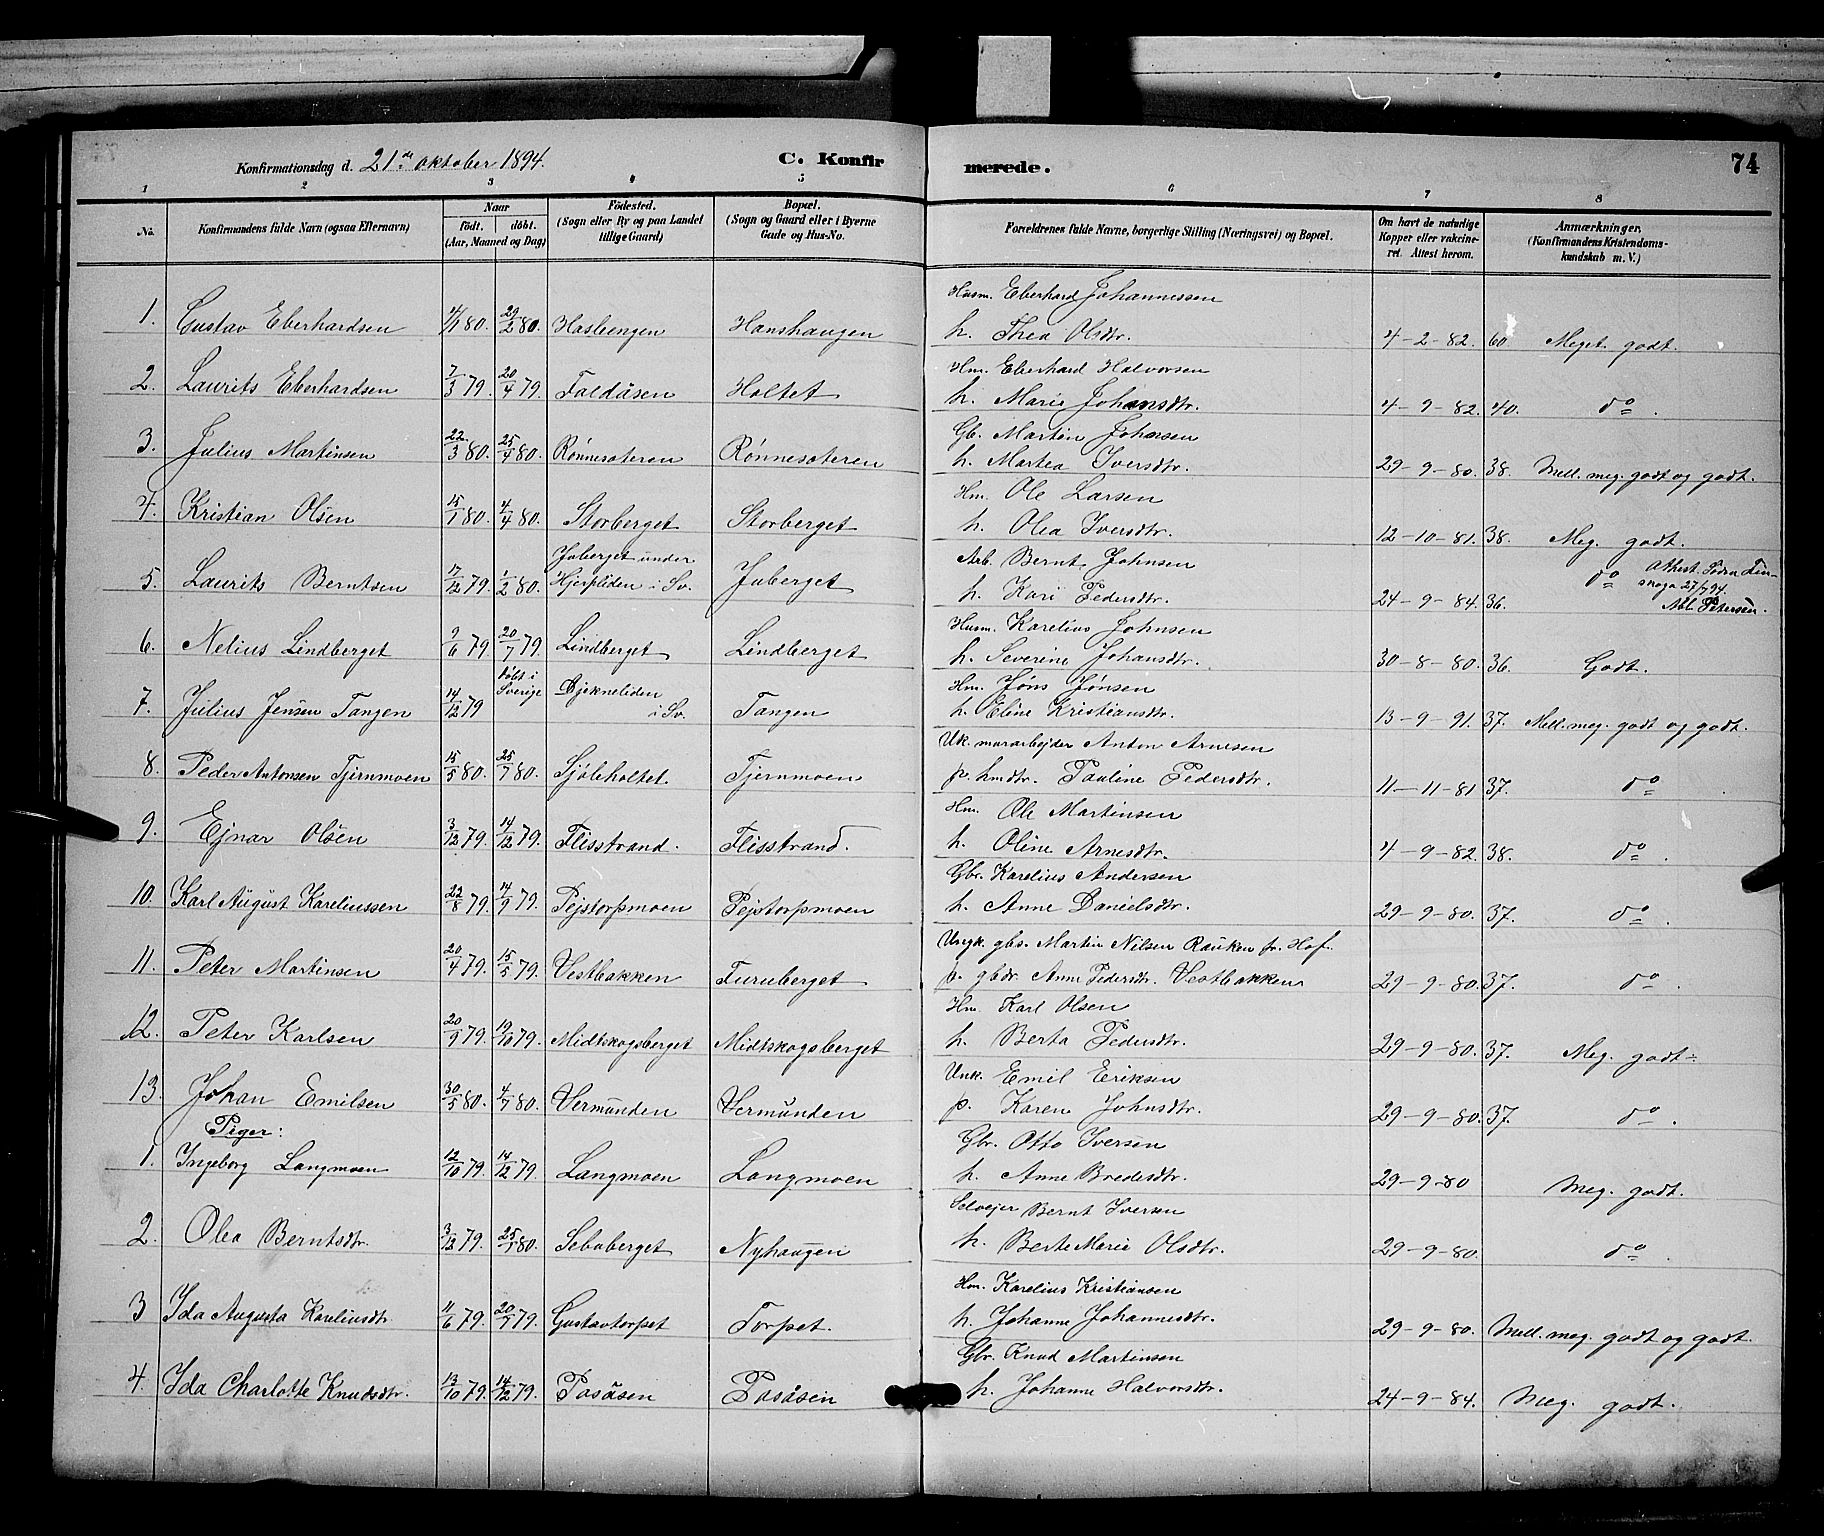 Konfirmationsdag d. 21de oktober 1894. C. Konfirmerede. 74
1 2 3 4 5 6 7 8
No. Konfirmandens fulde Navn (ogsaa Efternavn) Naar født. døbt. (Aar, Maaned og Dag) Fødested. (Sogn eller By og paa Landet tillige Gaard) Bopæl. (Sogn og Gaard eller i Byerne Gade og Hus-No. Forældrenes fulde Navne, borgerlige Stilling (Næringsvei) og Bopæl. Om havt de naturlige Kopper eller vakcineret. Attest herom. Anmærkninger, (Konfirmandens Kristendomskundskab m. V.)
Husm. Eberhard Johannessen
1. Gustav Eberhardsen 4/1 80. 29/2 80. Hasbengen Hanshaugen h. Thea Olsdtr. 4-2-82. 60 Meget godt.
Hm. Eberhard Halvorsen
2. Laurits Eberhardsen 7/3 79. 20/4 79. Faldåsen Holtet h. Marie Johansdtr. 4-9-82. 40. do.
Gb. Martin Johansen
3. Julius Martinsen 22/3 80. 25/4 80. Rønnesæteren Rønnesæteren h. Martea Iversdtr. 29-9-80. 38. Mell. meg. godt og godt.
Hm. Ole Larsen
4. Kristian Olsen 15/1 80. 4/4 80. Storberget Storberget h. Olea Iversdtr. 12-10-81. 38. Meg. godt.
Arb. Bernt Johnsen
5. Laurits Berntsen 17/12 79. 1/2 80. Juberget under Hjerpliden i Sv. Juberget h. Kari Pedersdtr. 24-9-84. 36. do Attest. Södra Finskoga 27/7 94. Petersen.
Husm. Karelius Johnsen
6. Nelius Lindberget 9/6 79 20/7 79. Lindberget Lindberget h. Severine Johansdtr. 30-8-80. 36. Godt.
Hm. Jøns Jønsen
7. Julius Jensen Tangen 14/12 79 døbt i Sverige Djekneliden i Sv. Tangen h. Eline Kristiansdtr. 13-9-91. 37. Mell. meg. godt og godt.
Uk. murarbejder Anton Arnesen
8. Peder Antonsen Tjernmoen 15/5 80. 25/7 80. Sjøliholtet Tjernmoen p. hmdtr. Pauline Pedersdtr. 11-11-81 37. do.
Hm. Ole Martinsen
9. Ejnar Olsen 3/12 79. 14/12 79. Flisstrand. Flisstrand. h. Oline Arnesdtr. 4-9-82. 38. do.
Gbr. Karelius Andersen
10. Karl August Kareliussen 22/8 79. 14/9 79. Pejstorpmoen Pejstorpmoen h. Anne Danielsdtr. 29-9-80. 37. do.
Ungk. gbs. Martin Nilsen Rauken fr. Hof.
11. Peter Martinsen 20/4 79. 15/5 79. Vestbakken Furuberget p. gbdr. Anne Pedersdtr. Vestbakken 29-9-80. 37. do.
Hm. Karl Olsen
12. Peter Karlsen 20/9 79. 19/10 79. Midtskogsberget Midtskogsberget h. Berta Pedersdtr. 29-9-80. 37. Meg. godt.
Unk. Emil Eriksen
13. Johan Emilsen 30/5 80. 4/7 80. Vermunden Vermunden p. Karen Johnsdtr. 29-9-80. 37. do.
Piger:
Gbr. Otto Iversen
1. Ingeborg Langmoen 12/10 79. 14/12 79. Langmoen Langmoen h. Anne Bredesdtr. 29-9-80 Meg. godt.
Selvejer Bernt Iversen
2. Olea Berntsdtr. 3/12 79. 25/1 80. Sebuberget Nyhaugen h. Berte Marie Olsdtr. 29-9-80. do.
Hm. Karelius Kristiansen
3 Ida Augusta Kareliusdtr. 11/6 79. 20/7 79. Gustavtorpet Torpet. h. Johanne Johannesdtr. 29-9-80. Mell. meg. godt og godt.
Gbr. Knud Martinsen
4. Ida Charlotte Knudsdtr. 13/10 79. 14/12 79. Posåsen Posåsen h. Johanne Halvorsdtr. 24-9-84. Meg. godt.